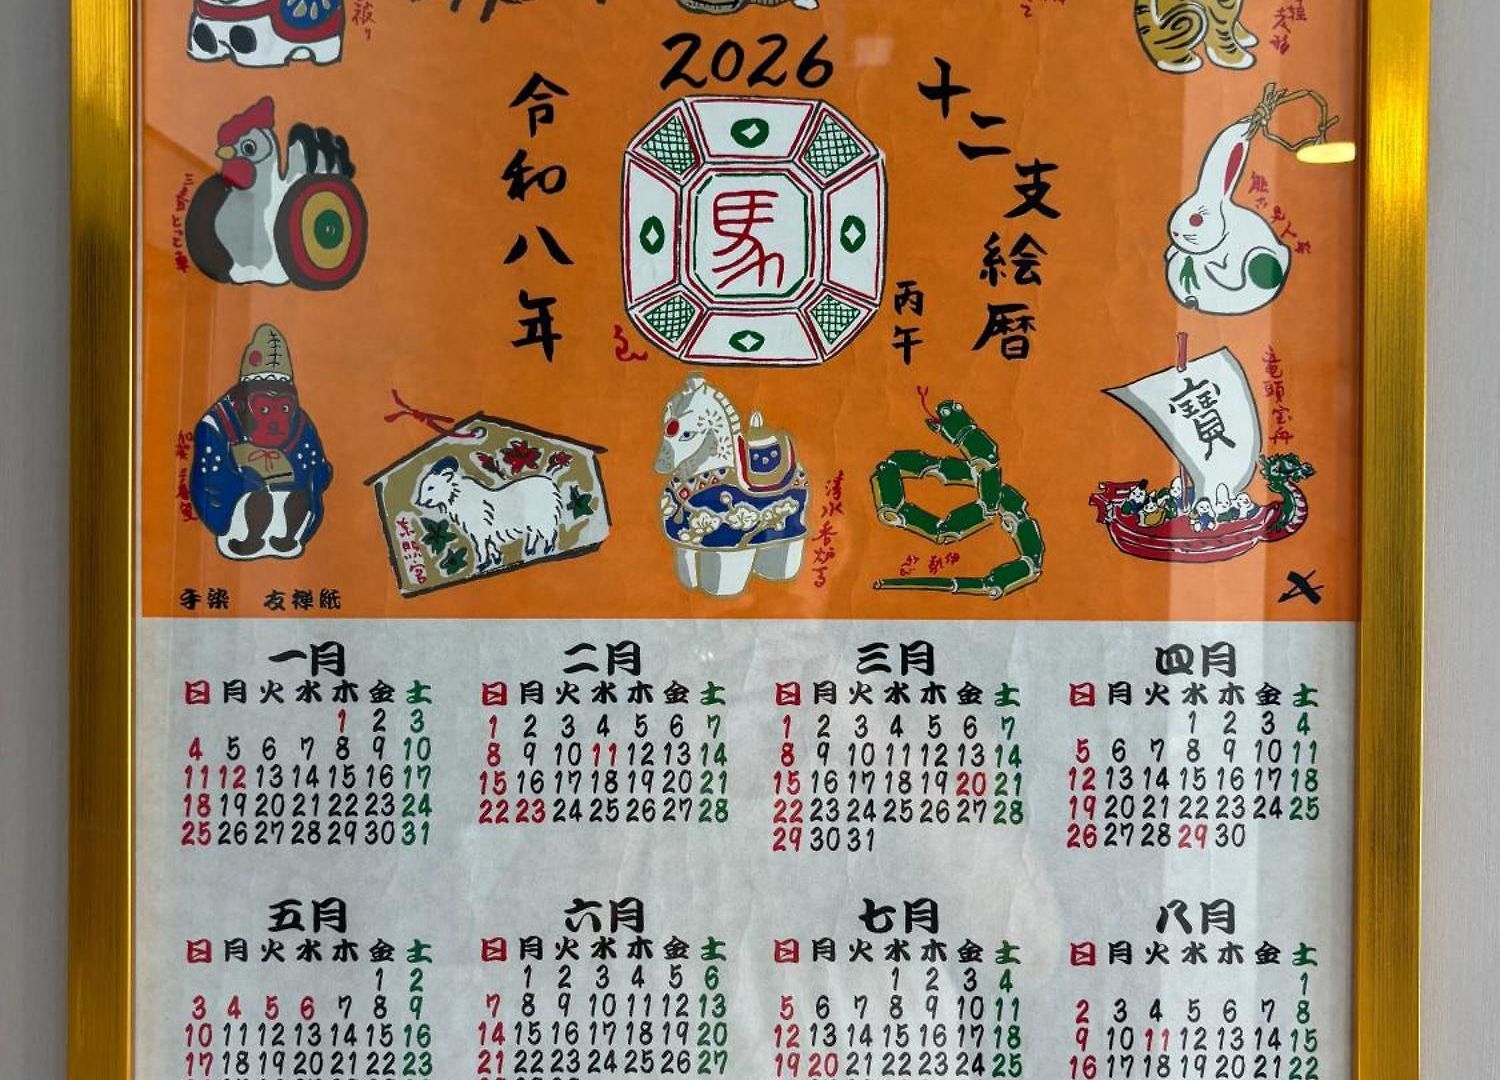 2026
十二支絵暦
令和八年
馬
丙午
寶
竜頭宝舟
清水香炉馬
東照宮
手染 友禅紙
一月
日 月 火 水 木 金 土
1 2 3
4 5 6 7 8 9 10
11 12 13 14 15 16 17
18 19 20 21 22 23 24
25 26 27 28 29 30 31
二月
日 月 火 水 木 金 土
1 2 3 4 5 6 7
8 9 10 11 12 13 14
15 16 17 18 19 20 21
22 23 24 25 26 27 28
三月
日 月 火 水 木 金 土
1 2 3 4 5 6 7
8 9 10 11 12 13 14
15 16 17 18 19 20 21
22 23 24 25 26 27 28
29 30 31
四月
日 月 火 水 木 金 土
1 2 3 4
5 6 7 8 9 10 11
12 13 14 15 16 17 18
19 20 21 22 23 24 25
26 27 28 29 30
五月
日 月 火 水 木 金 土
1 2
3 4 5 6 7 8 9
10 11 12 13 14 15 16
17 18 19 20 21 22 23
六月
日 月 火 水 木 金 土
1 2 3 4 5 6
7 8 9 10 11 12 13
14 15 16 17 18 19 20
21 22 23 24 25 26 27
七月
日 月 火 水 木 金 土
1 2 3 4
5 6 7 8 9 10 11
12 13 14 15 16 17 18
19 20 21 22 23 24 25
八月
日 月 火 水 木 金 土
1
2 3 4 5 6 7 8
9 10 11 12 13 14 15
16 17 18 19 20 21 22